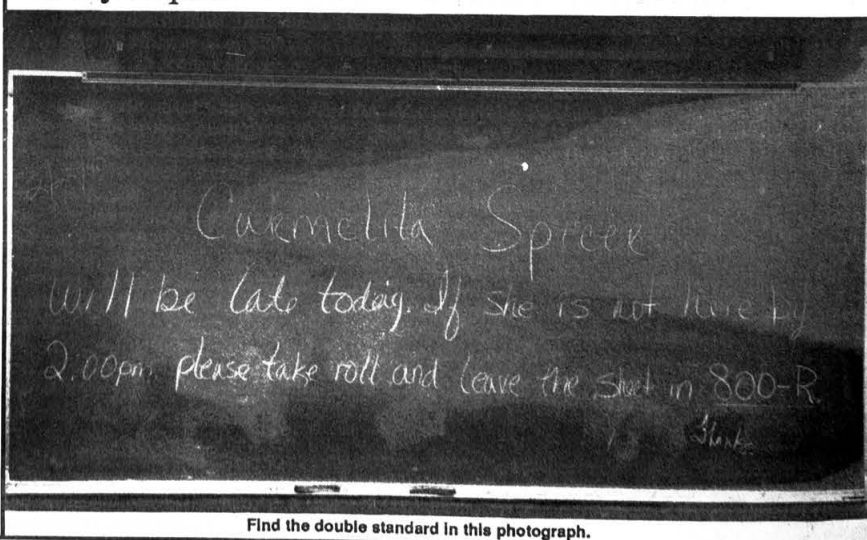 Carmelita Spicer
will be late today. If she is not here by
2:00pm please take roll and leave the sheet in 800-R.
Thanks
Find the double standard in this photograph.